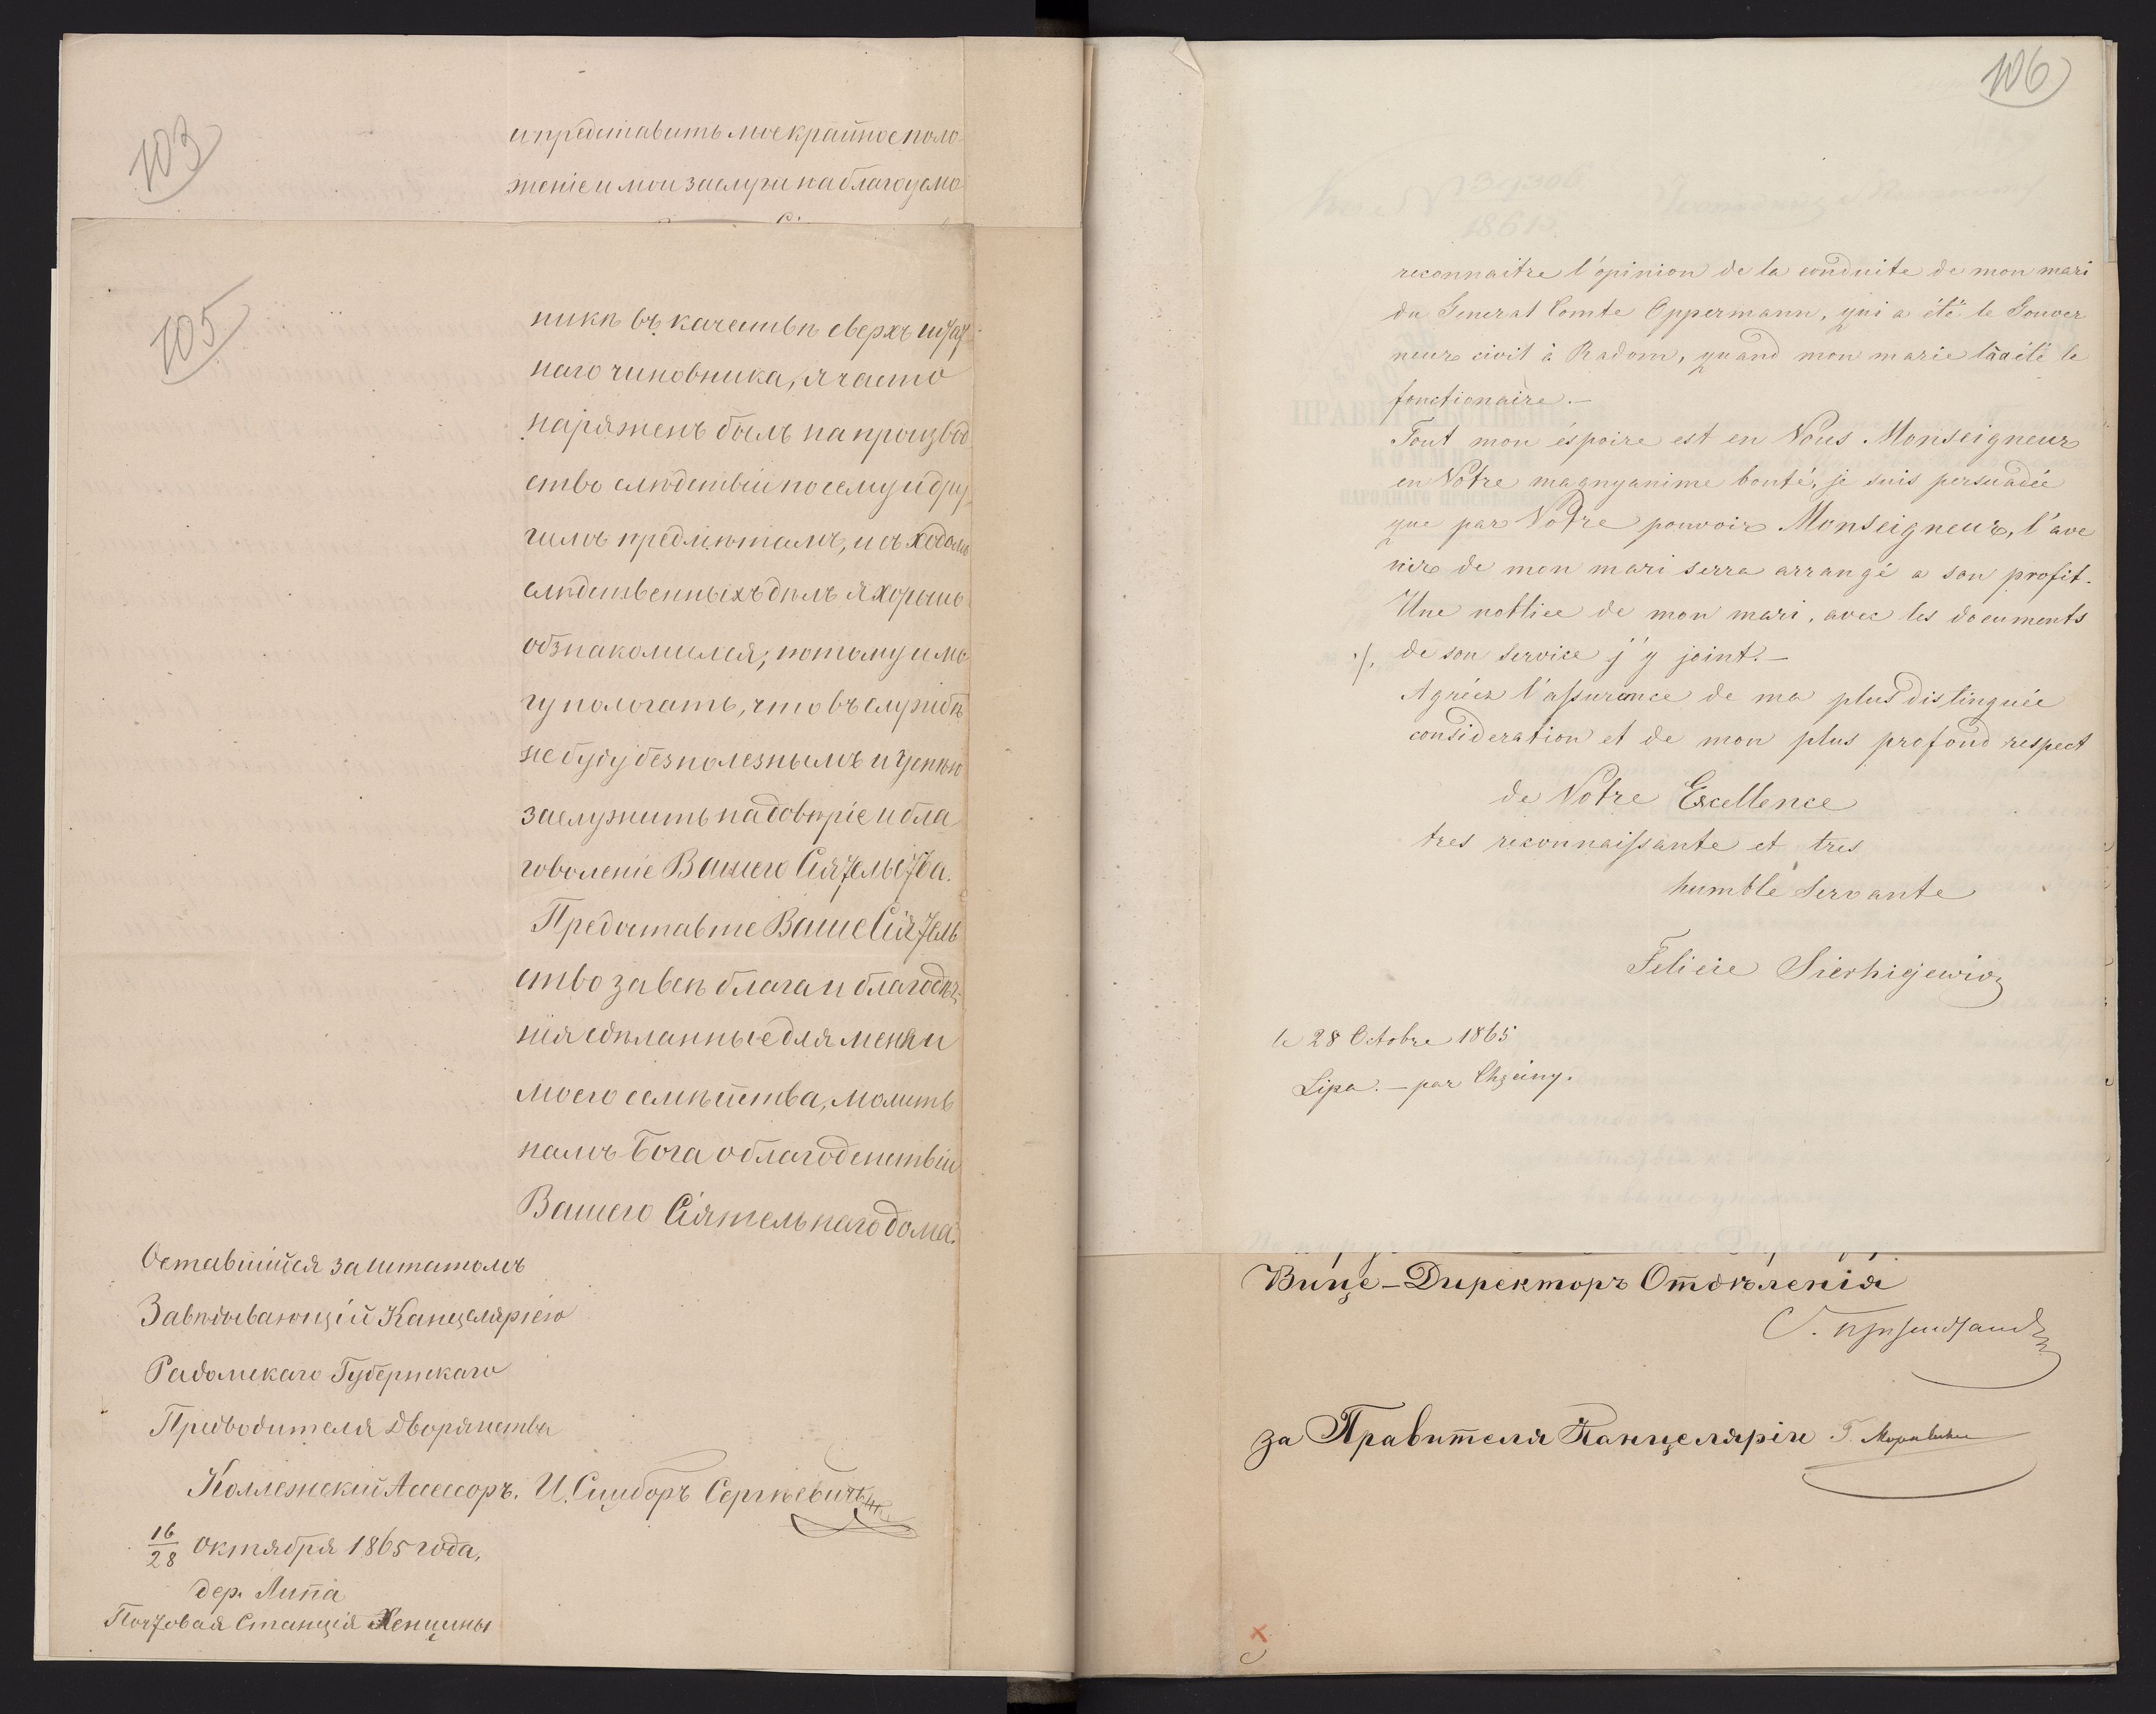 103
и представить мое крайное поло-
женіе и мои заслуги на благоусмо
105
никѣ въ качествѣ сверхъ штат-
наго чиновника, я часто
наряженъ былъ на производ
ство слѣдствій по сему и дру-
гимъ предмѣтамъ, и съ ходомъ
слѣдственныхъ дѣлъ я хорошо
обзнакомился, потому и мо
гу пологать, что въ службѣ
не буду безполезнымъ и успѣю
заслужить на довѣріе и бла
говоленіе Вашего Сіятельства.
Предоставте Ваше Сіятель
ство за всѣ блага и благодѣя-
нія сдѣланные для меня и
моего семѣйства, молить
намъ Бога о благоденствіи
Вашего Сіятельнаго дома.
Оставшійся за штатомъ
Завѣдывающій Канцеляріею
Радомскаго Губернскаго
Предводителя Дворянства
Коллежскій Ассесоръ. И. Сцыборъ Сергѣевичъ
16/28 октября 1865 года,
дер. Липа
Почтовая Станція Хенцины
106
reconnaitre l'opinion de la conduite de mon mari
du General Comte Oppermann, qui a été le Gouver
neur civil à Radom, quand mon marie là a été le
fonctionaire.—
Tout mon éspoire est en Vous Monseigneur
en Votre magnyanime bonté, je suis persuadée
que par Votre pouvoir Monseigneur, l'ave
nir de mon mari serra arrangé a son profit.
Une nottice de mon mari, avec les documents
·/. de son service j'y joint.—
Agréez l'assurance de ma plus distinguée
consideration et de mon plus profond respect
de Votre Excellence
tres reconnaissante et tres
humble Servante
Felicie Sierhiejewicz
le 28 Octobre 1865
Lipa.— par Chęciny.
Вице-Директоръ Отдѣленія
за Правителя Канцеляріи